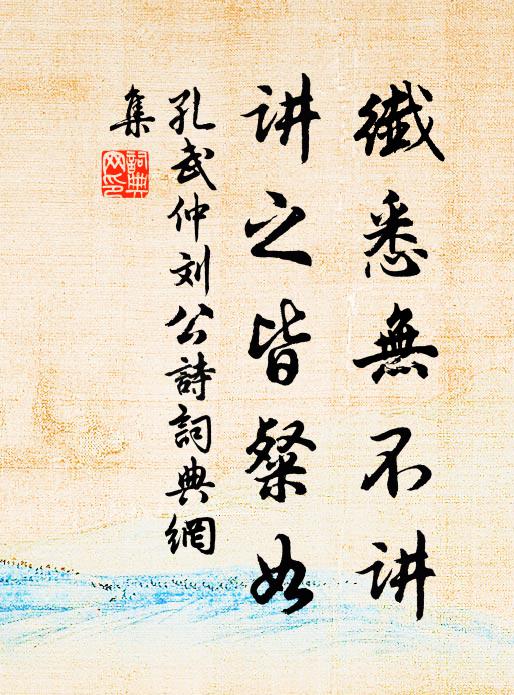 纖悉無不讲
讲之皆粲如
孔武仲刘公詩詞典網
集
詞典
网印